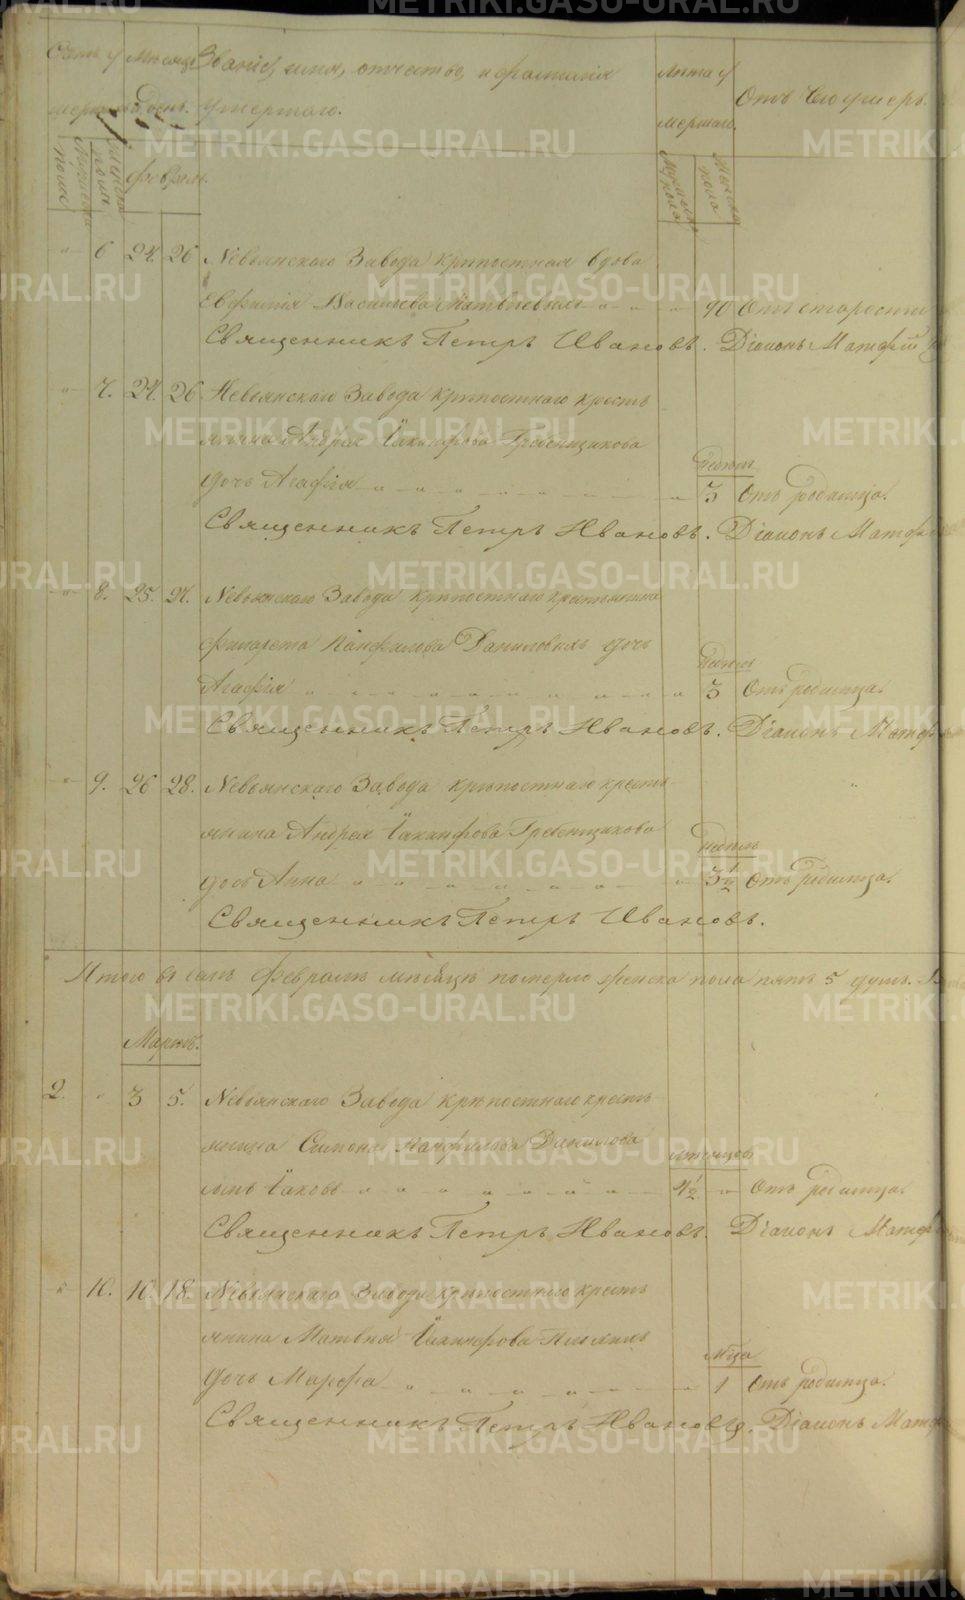 Счетъ у Мѣсяцъ Званіе, имя, отчество, и фамилія Лѣта у Отъ чего умеръ.
мершихъ и день. умершаго. мершаго.
Февраль.
Мужеска пола Женска пола
" 6 24. 26 Невьянскаго Завода крѣпостная вдова
Евфимія Васильева Матвѣевыхъ 90 Отъ старости
Священникъ Петръ Ивановъ. Діаконъ Матфій
" 7. 24. 26 Невьянскаго Завода крѣпостнаго кресть
янина Андрея Іакинфова Гребенщикова недѣль
дочь Агафія 3 Отъ родимца.
Священникъ Петръ Ивановъ. Діаконъ Матф
" 8. 25. 27. Невьянскаго Завода крѣпостнаго крестьянина
Филарета Панфилова Даниловыхъ дочь недѣль
Агафія 3 Отъ родимца.
Священникъ Петръ Ивановъ. Діаконъ Матф
" 9. 26 28. Невьянскаго Завода крѣпостнаго кресть
янина Андрея Іакинфова Гребенщикова недѣль
дочь Анна 3 1/2 Отъ родимца.
Священникъ Петръ Ивановъ.
Итого въ семъ Февралѣ мѣсяцѣ померло женска пола пять 5 душъ.
Мартъ.
2. " 3 5. Невьянскаго Завода крѣпостнаго кресть
янина Симона Панфилова Данилова мѣсяцевъ
сынъ Іаковъ 4 1/2 " Отъ родимца.
Священникъ Петръ Ивановъ. Діаконъ Матф
" 10. 16. 18. Невьянскаго Завода крѣпостнаго кресть
янина Матвѣя Іакинфова мѣсца
дочь Марфа 1 Отъ родимца.
Священникъ Петръ Ивановъ. Діаконъ Матф
METRIKI.GASO-URAL.RU